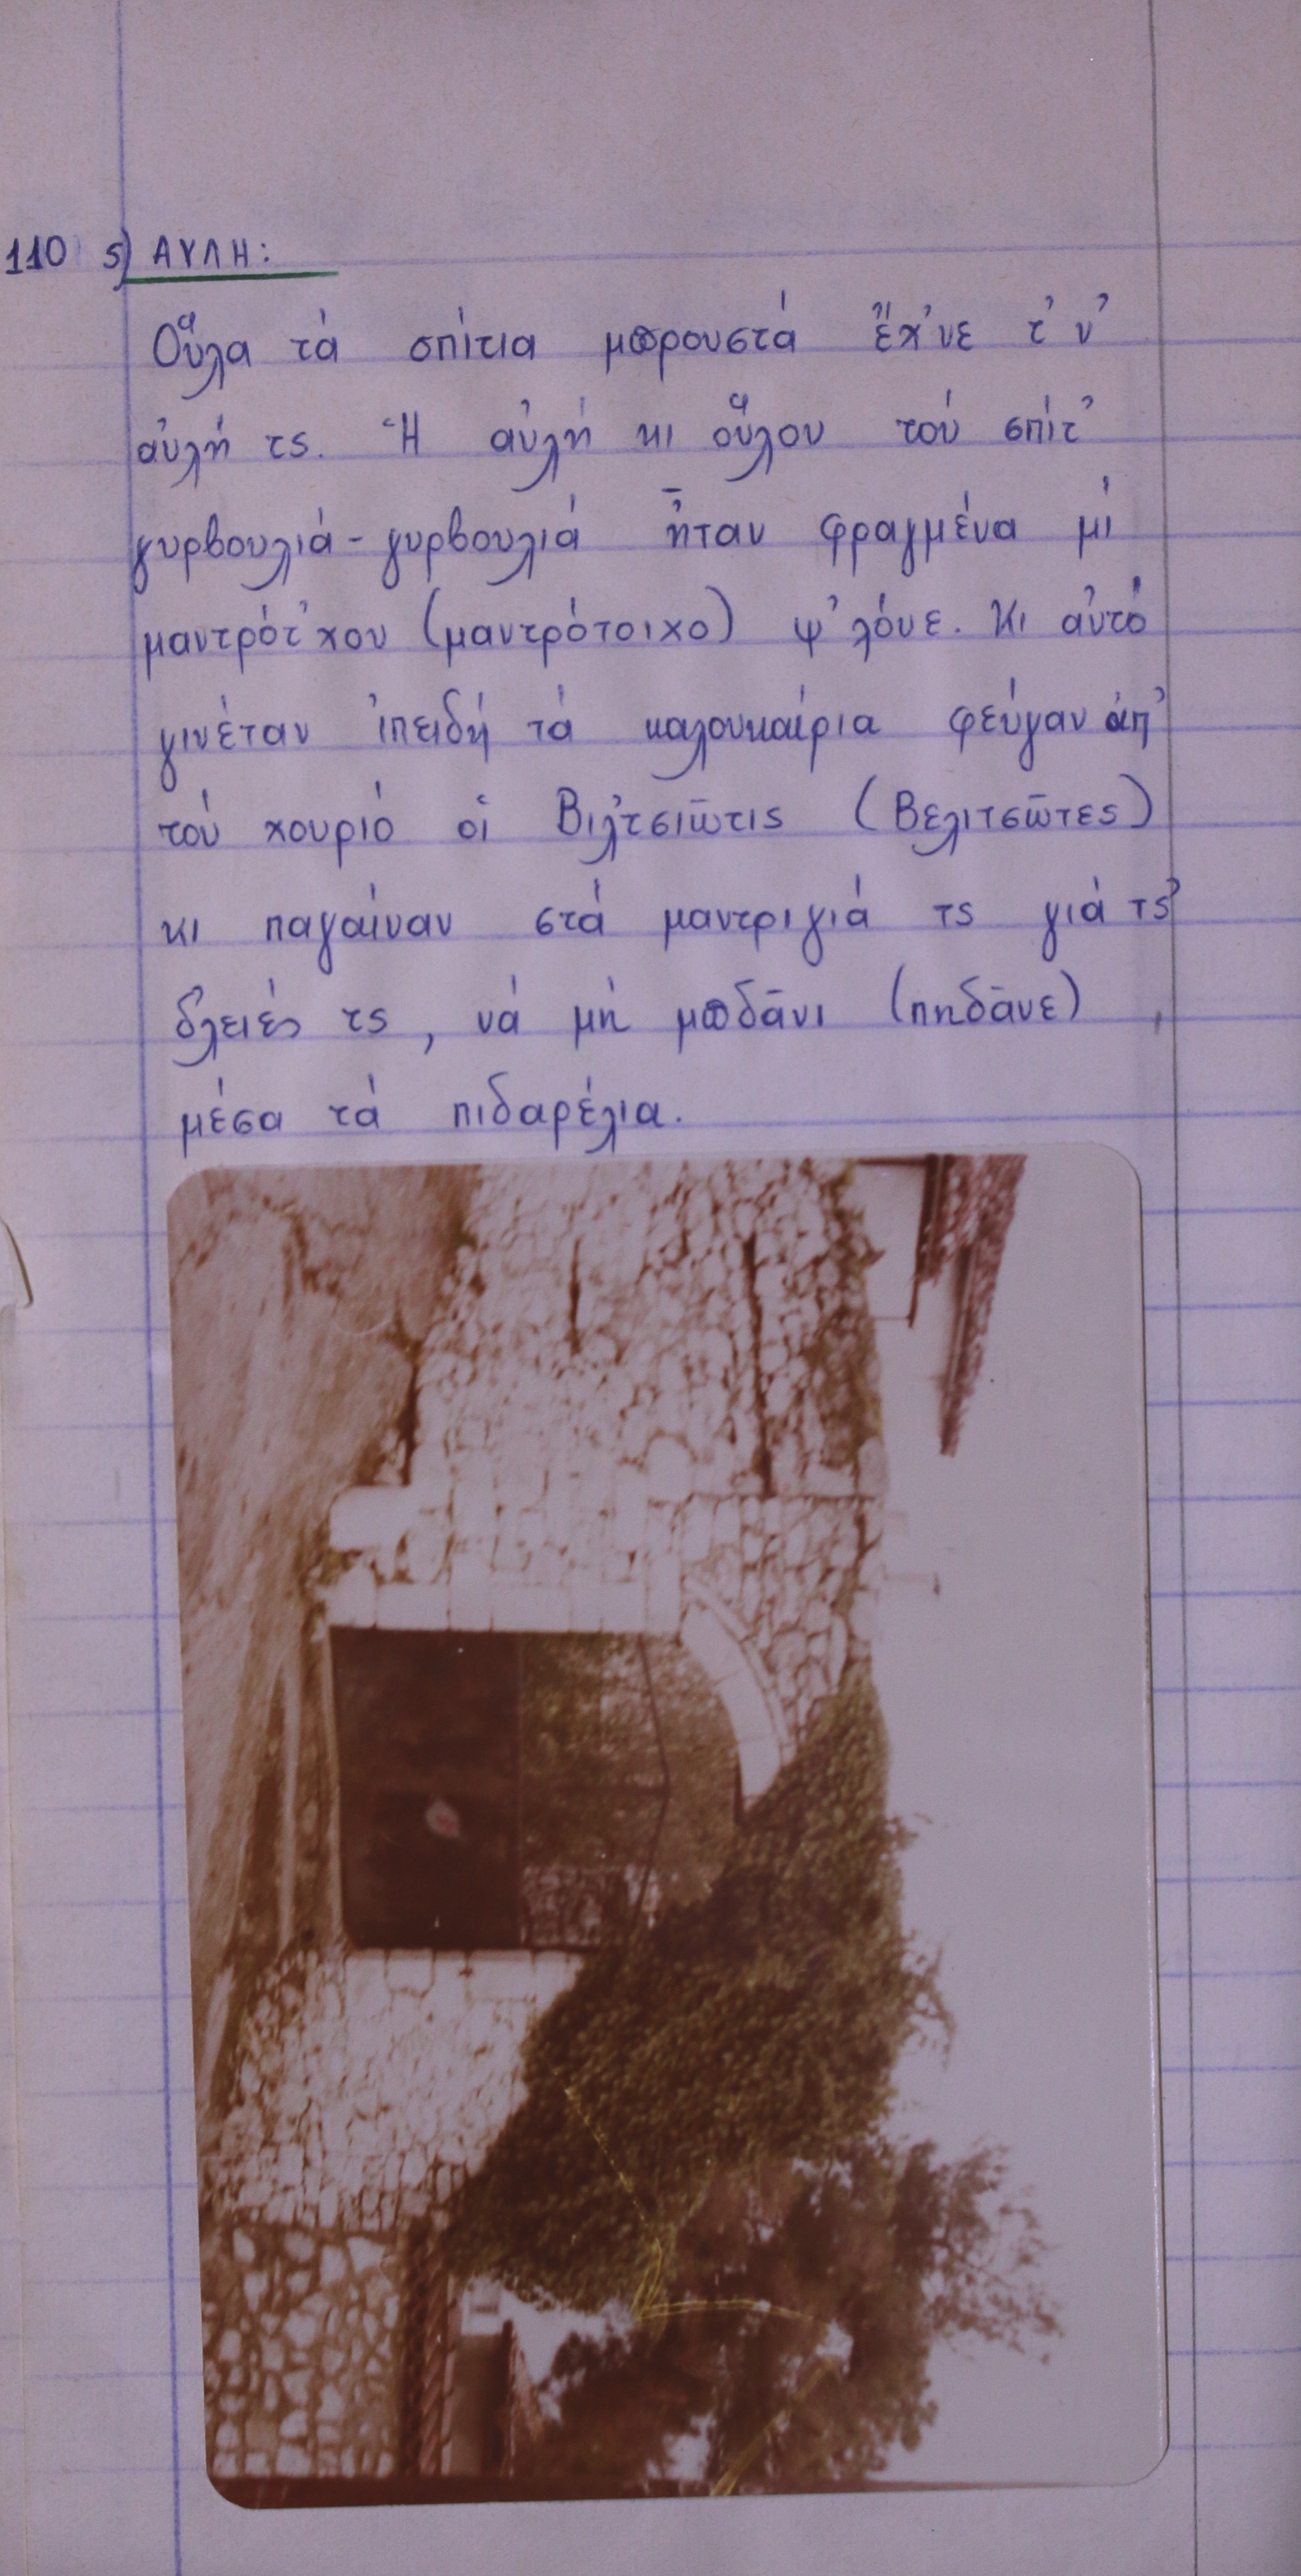 110 5) ΑΥΛΗ:
Οὕλα τά σπίτια μπρουστά ἔχ'νε τ' ν'
αὐλή τς. Ἡ αὐλή κι οὕλου τού σπίτ'
γυρβουλιά - γυρβουλιά ἦταν φραγμένα μί
μαντρότ'χου (μαντρότοιχο) ψ'λόνε. Κι αὐτό
γινέταν ἰπειδή τά καλουκαίρια φεύγαν ἀπ'
τού χουριό οἱ Βιλ'τσιῶτις (Βελιτσῶτες)
κι παγαίναν στά μαντριγιά τς γιά τς'
δ'λειές τς, νά μή μπδᾶνι (πηδᾶνε)
μέσα τά πιδαρέλια.